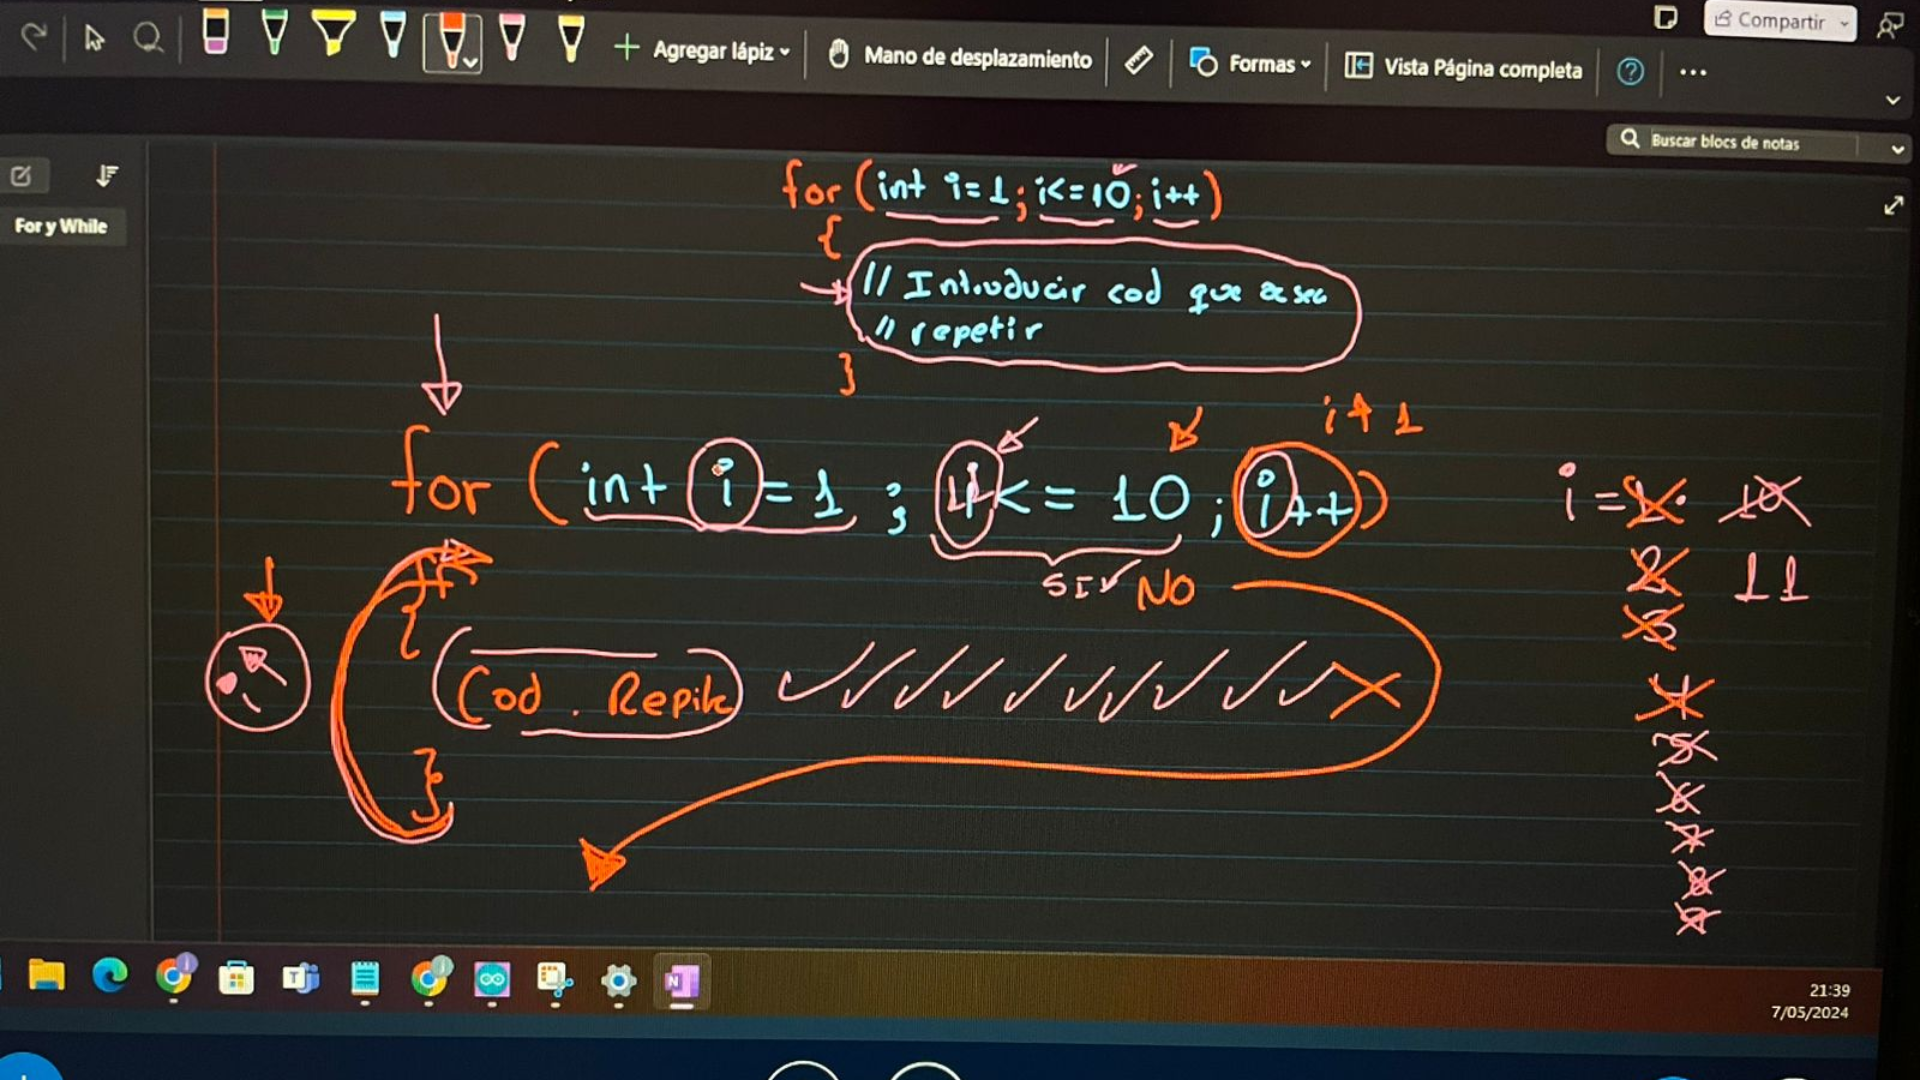 Compartir
Agregar lápiz
Mano de desplazamiento
Formas
Vista Página completa
?
Buscar blocs de notas
For y While
for (int i=1; i<=10; i++)
{
// Introducir cod que
// repetir
}
i+1
for (int i = 1 ; i <= 10 ; i++)
SI NO
{
Cod. Repite
}
i = 1 10
2 11
3
4
5
6
7
8
9
21:39
7/05/2024